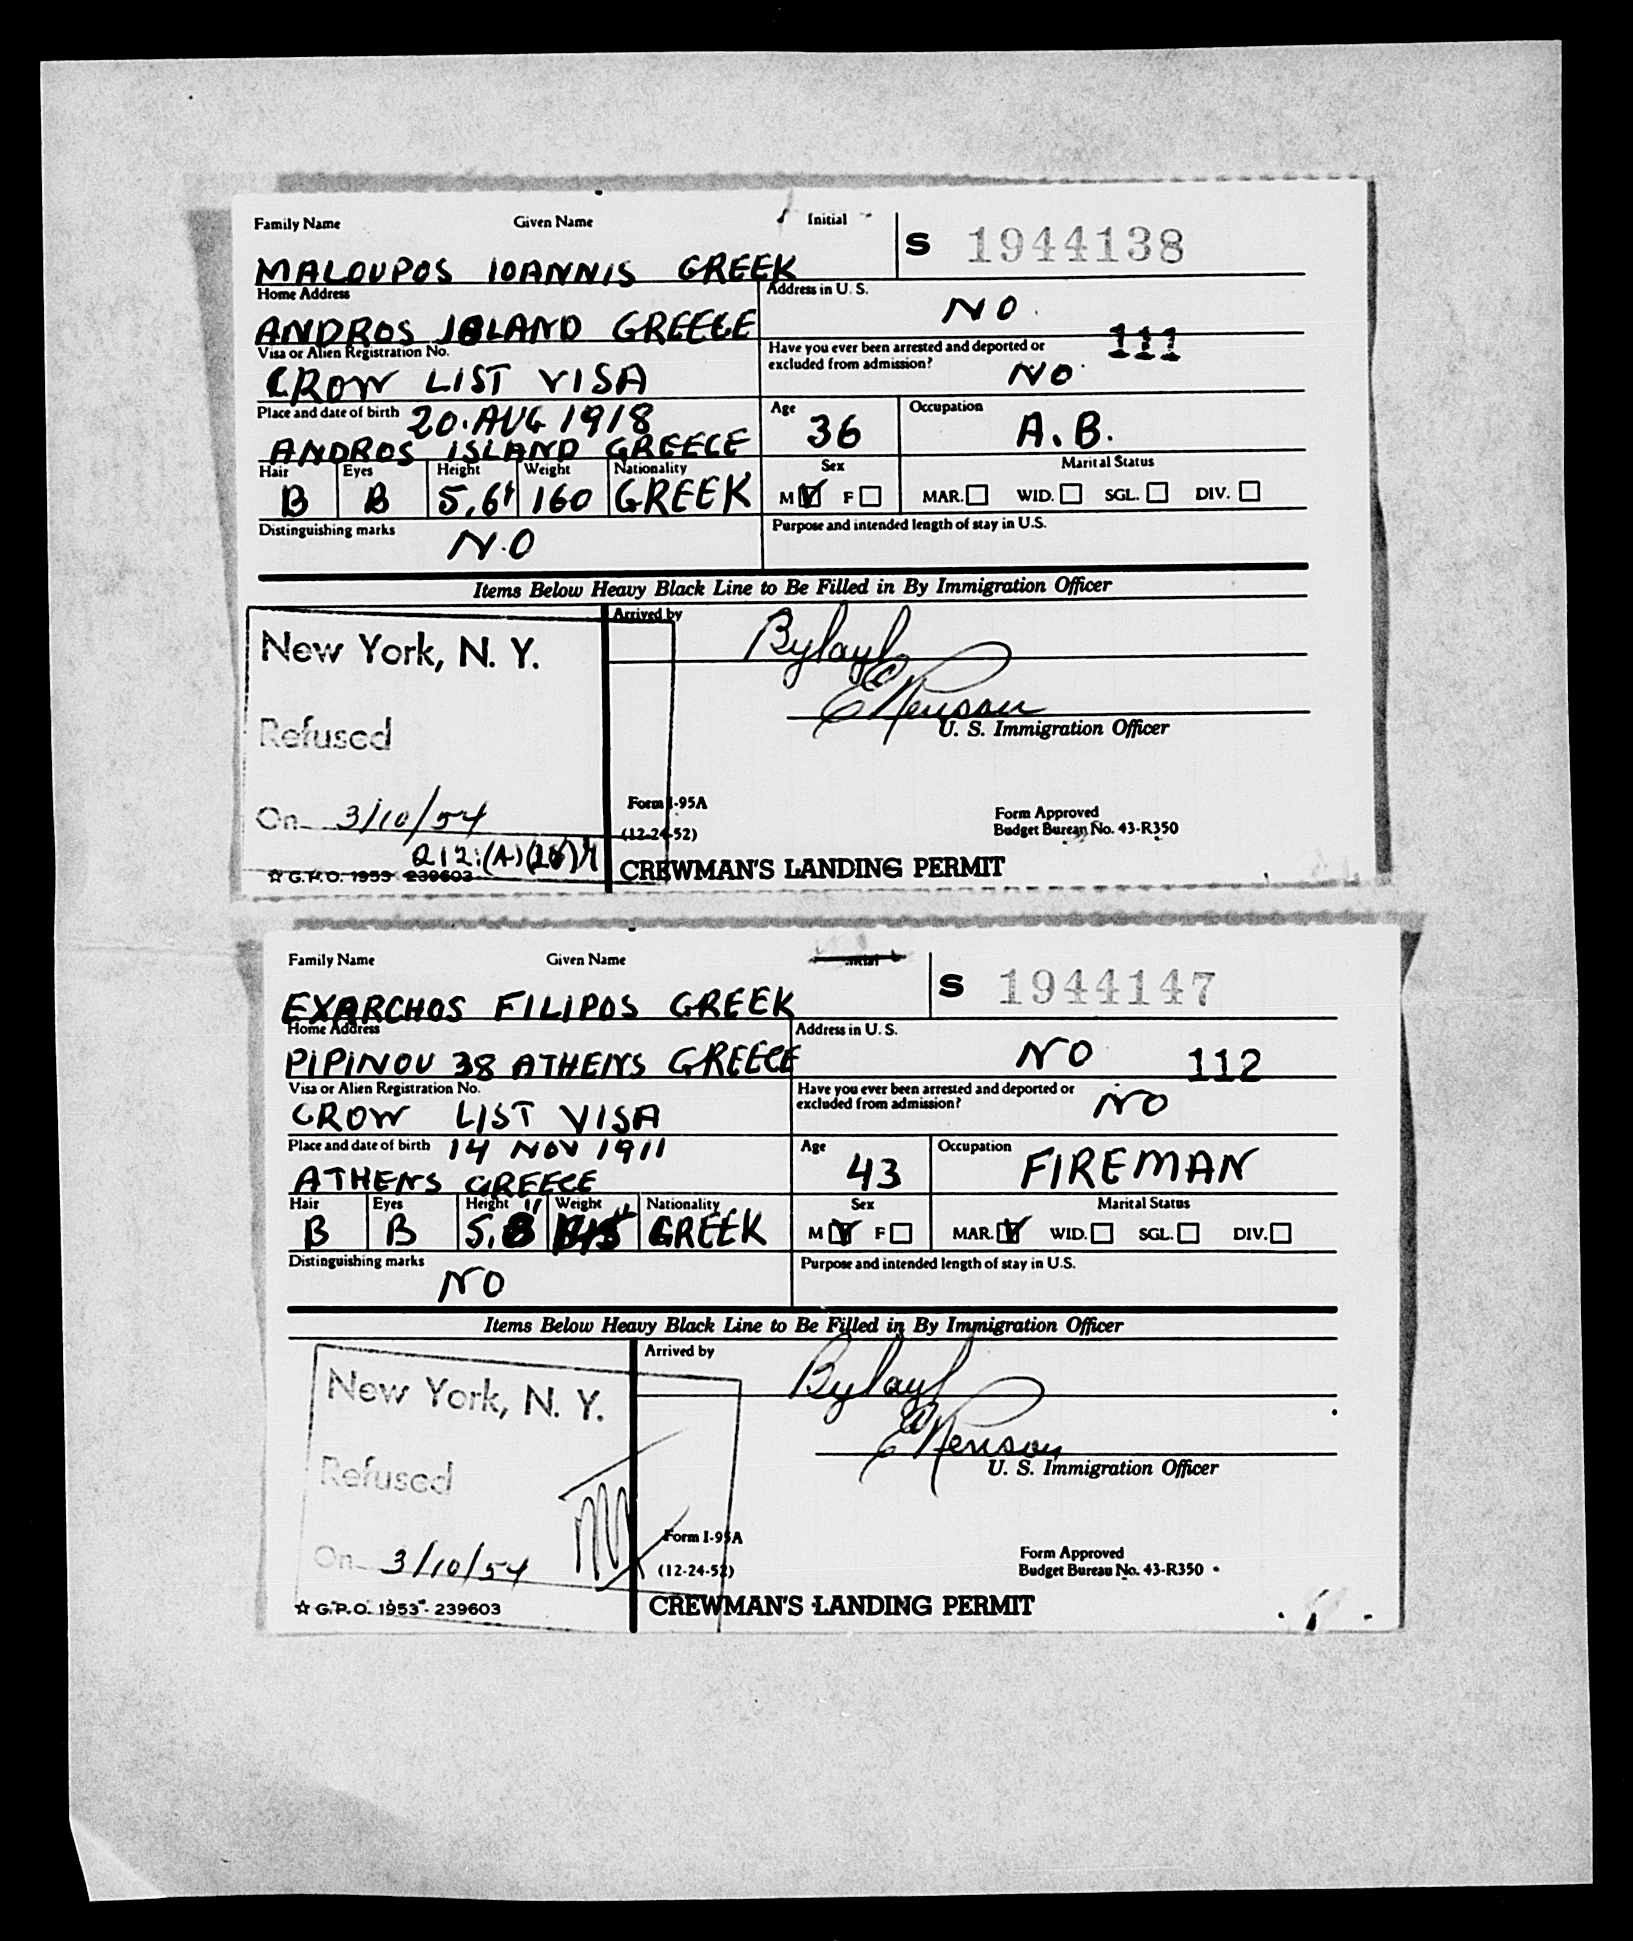 Family Name Given Name Initial
S 1944138
MALOUPOS IOANNIS GREEK
Home Address Address in U. S.
ANDROS ISLAND GREECE NO
Visa or Alien Registration No. Have you ever been arrested and deported or excluded from admission? 111
CROW LIST VISA NO
Place and date of birth 20. AUG 1918 Age 36 Occupation A.B.
ANDROS ISLAND GREECE
Hair Eyes Height Weight Nationality Sex Marital Status
B B 5,6" 160 GREEK M F MAR. WID. SGL. DIV.
Distinguishing marks Purpose and intended length of stay in U.S.
N.O
Items Below Heavy Black Line to Be Filled in By Immigration Officer
Arrived by
New York, N. Y.
U. S. Immigration Officer
Refused
Form I-95A Form Approved
On 3/10/54 (12-24-52) Budget Bureau No. 43-R350
☆ G.P.O. 1953 - 239603 CREWMAN'S LANDING PERMIT
Family Name Given Name Initial
S 1944147
EXARCHOS FILIPOS GREEK
Home Address Address in U. S.
PIPINOU 38 ATHENS GREECE NO 112
Visa or Alien Registration No. Have you ever been arrested and deported or excluded from admission?
CROW LIST VISA NO
Place and date of birth 14 NOV 1911 Age 43 Occupation FIREMAN
ATHENS GREECE
Hair Eyes Height Weight Nationality Sex Marital Status
B B 5,8" GREEK M F MAR. WID. SGL. DIV.
Distinguishing marks Purpose and intended length of stay in U.S.
NO
Items Below Heavy Black Line to Be Filled in By Immigration Officer
Arrived by
New York, N. Y.
U. S. Immigration Officer
Refused
Form I-95A Form Approved
On 3/10/54 (12-24-52) Budget Bureau No. 43-R350
☆ G.P.O. 1953 - 239603 CREWMAN'S LANDING PERMIT